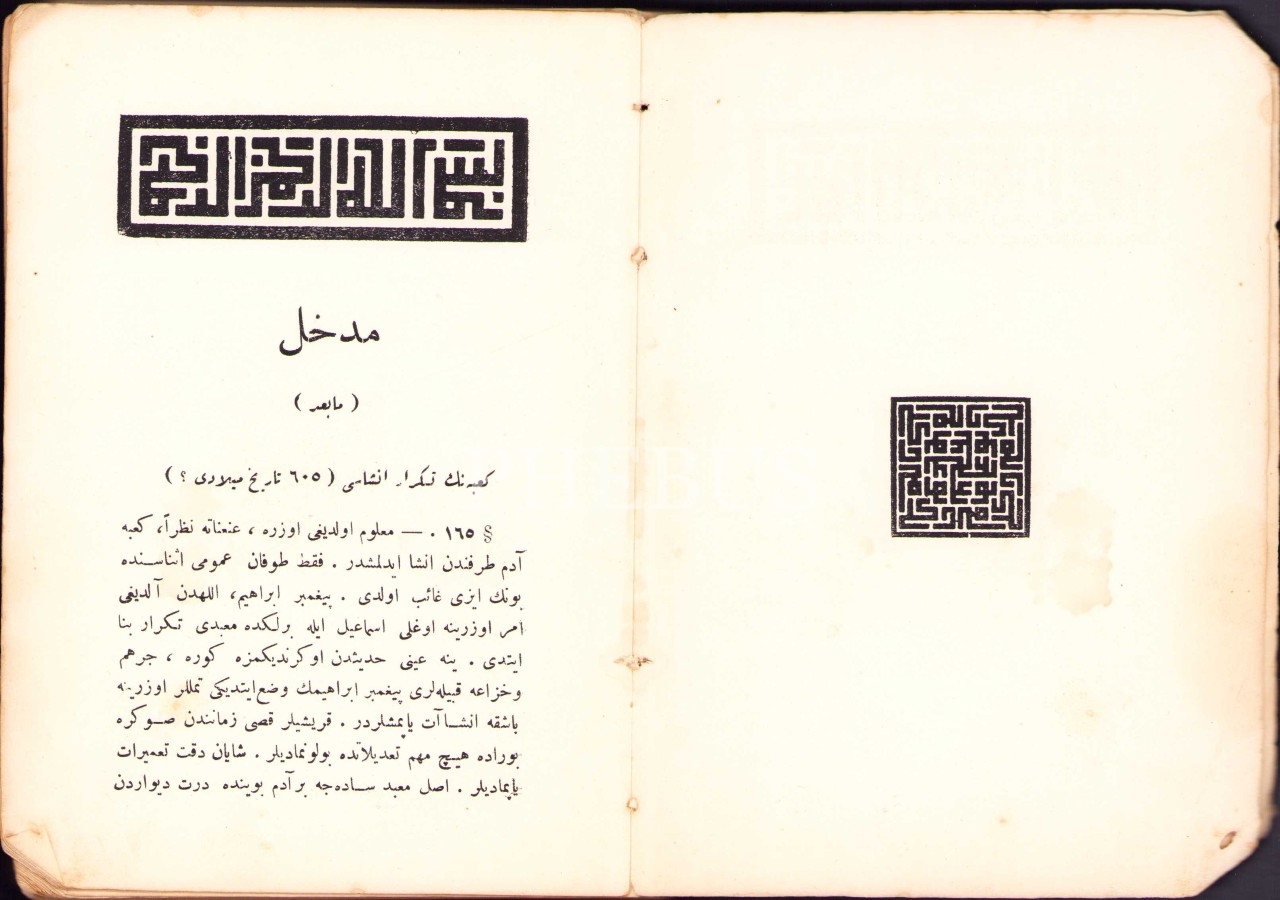 بسم الله الرحمن الرحيم
مدخل
( مابعد )
كعبه‌نك تكرار انشاسى ( ٦٠٥ تاريخ ميلادى ؟ )
§ ١٦٥ . — معلوم اولديغى اوزره ، عنعناته نظراً، كعبه
آدم طرفندن انشا ايدلمشدر . فقط طوفان عمومى اثناسـنده
بونك ايزى غائب اولدى . پيغمبر ابراهيم، اللهدن آلديغى
امر اوزرينه اوغلى اسماعيل ايله برلكده معبدى تكرار بنا
ايتدى . ينه عينى حديثدن اوكرنديكمزه كوره ، جرهم
وخزاعه قبيله‌لرى پيغمبر ابراهيمك وضع ايتديكى تمللر اوزرينه
باشقه انشـاآت ياپمشلردر . قريشيلر قصى زمانندن صـوكره
بوراده هيـچ مهم تعديلاتده بولونماديلر . شايان دقت تعميرات
ياپماديلر . اصل معبد سـاده‌جه بر آدم بوينده درت ديواردن
PHEBUS